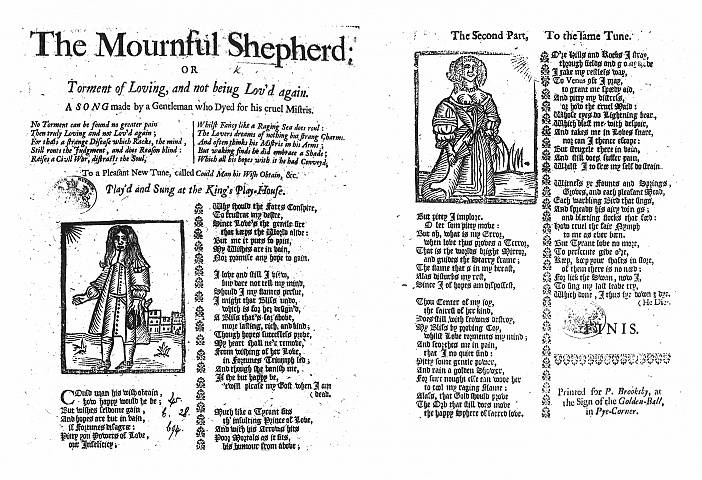 The Mournful Shepherd;
OR
Torment of Loving, and not being Lov'd again.
A SONG made by a Gentleman who Dyed for his cruel Mistris.
No Torment can be found no greater pain
Then truly Loving and not Lov'd again;
For thats a strange Disease which Racks, the mind,
Still routs the Judgement, and does Reason blind:
Raises a Civil War, distrasts the Soul,
Whilst Fancy like a Raging Sea does roul:
The Lovers dreams of nothing but strong Charms.
And often thinks his Mistris in his Arms;
But waking finds he did embrace a Shade;
Which all his hopes with it he had Convey'd,
To a Pleasant New Tune, called Could Man his Wish Obtain, &c.
Play'd and Sung at the King's Play-House.
COuld man his wish obtain,
how happy would he be;
But wishes seldome gain,
And hopes are but in vain,
if Fortunes disagree:
Pitty you Powers of Love,
our Infelicity;
Why should the Fates Conspire,
To frustrat my desire,
Since Love's the gentle fire
that keeps the World alive:
But me it puts to pain,
My Wishes are in vain,
Nor promise any hope to gain.
I love and still I
but dare not tell my mind,
Should I my flames persue,
I might that Bliss undo,
which is for her design'd,
A Bliss that's far above,
more lasting, rich, and kind;
Though hopes successless prove,
My heart shall ne'r remove,
From wishing of her Love,
in Fortunes Triumph led;
And though she banish me,
If she but happy be,
'twill please my Gost when I am
(dead.
Much like a Tyrant sits
th' insulting Prince of Love,
And with his Arrows hits
Poor Mortals as it fits,
his humour from above;
The Second Part, To the same Tune.
But pitty I implore,
O let som pitty move:
But oh, what is my Error,
when love thus proves a Terror,
That is the worlds bright Mirror,
and guides the Starry frame;
The flame that s in my breast,
Alas disturbs my rest,
Since I of hopes am dispossest,
Thou Center of my joy,
the fairest of her kind,
Does still with frowns destroy,
My Bliss by proving Coy,
whilst Love torments my mind;
And scorches me in pain,
that I no quiet find:
Pitty some gentle power,
And rain a golden Shower,
For sure nought else can move her
to cool my raging flame:
Alass, that Gold should prove
The Orb that still does move
the happy Sphere of sacred love.
O're Hills and Rocks I stray,
through fields and
I take my restless way,
To Venus oft I pray,
to grant me speedy aid,
And pitty my distress,
or how the cruel Maid:
Whose eyes do Lightening bear,
Which blast me with despair,
And takes me in Loves snare,
nor can I thence escape:
But strugele there in vain,
And still does suffer pain,
Whilst I to free my self do strain.
Witness ye Founts and Springs,
Groves, and each pleasant Mead,
Each warbling Bird that sings,
And spreads his airy wings;
and bleeting flocks that feed:
How cruel the fair Nymph
to me as ever been.
But Tyrant love no more,
To persecute give o're,
Keep, keep your shafts in store,
of them there is no need:
For like the Swan, now I,
To sing my last leave try,
Which done, I thus lye down & dye.
FINIS.
Printed for P. Brooksby, at
the Sign of the Golden-Ball,
in Pye-Corner.